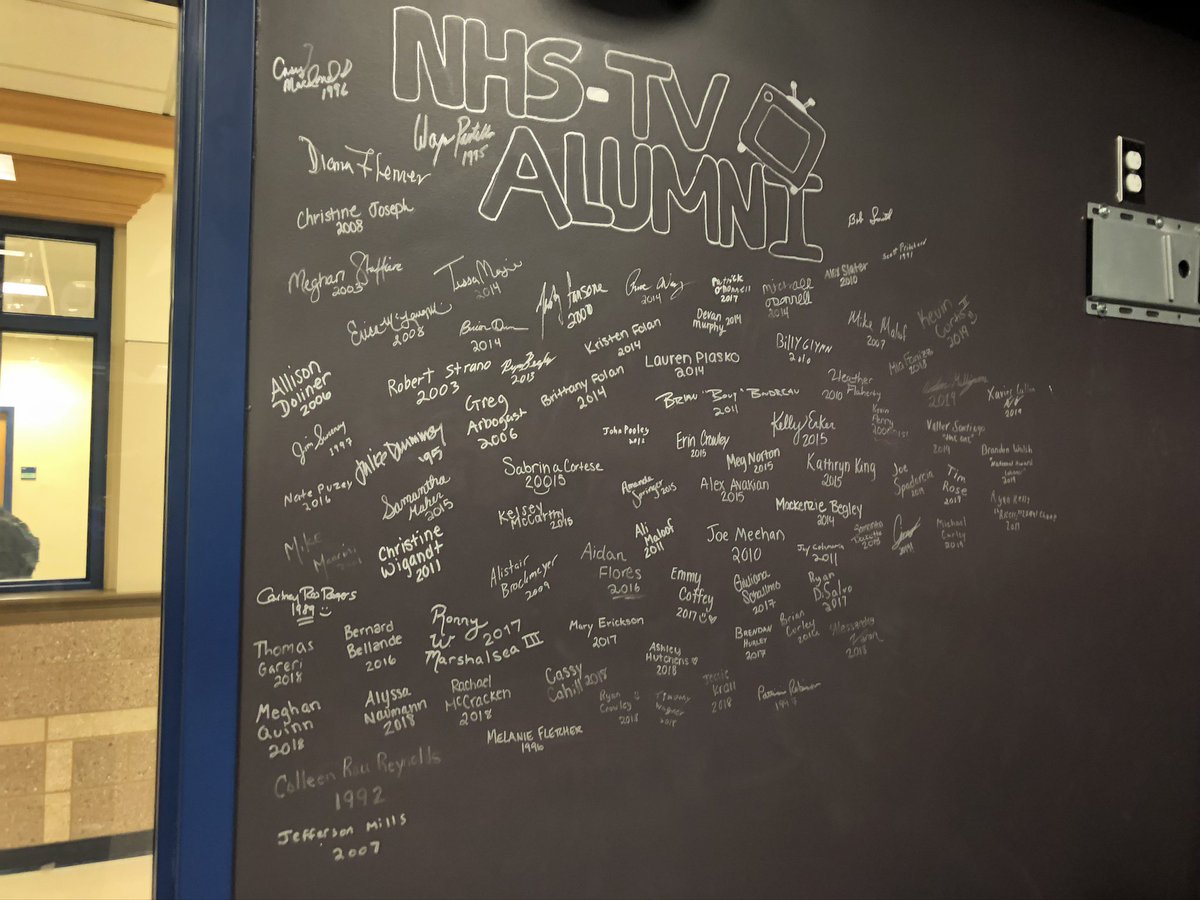 NHS-TV
ALUMNI
Casey
MacDonald
1996
Wayne
1995
Diema Flerner
Christine Joseph
2008
Meghan
2003
Tessa
2014
2000
2014
Patrick
O'Donnell
2017
Michael
O'Donnell
2014
Slater
2010
Bob Smith
Scott Pritchard
1991
2008
Brian
2014
Kristen Folan
2014
Devan
Murphy 2014
Billy Glynn
2010
Mike Malof
2007
Kevin
2019
Mia
2018
Allison
Doliner
2006
Robert Strano
2003
Ryan Begley
2013
Brittany Folan
2014
Lauren Plasko
2014
Brian "Bou" Boudreau
2011
Heather
Flaherty
2010
2019
Xavier
2019
Jim Sweeney
1997
Greg
Arbogast
2006
John Pooley
2012
Erin Crowley
2015
Kelly Erker
2015
Kevin
Penny
Valter Santiago
2019
Brandon Walsh
"National Award
2019
'95
Nate Puzey
2016
Samantha
Maher
2015
Sabrina Cortese
20015
Amanda
Springer 2015
Meg Norton
2015
Alex Avakian
2015
Kathryn King
2015
Joe
Spadorcia
2019
Tim
Rose
2019
Ryan
2011
Kelsey
McCarthy
2015
Mackenzie Begley
2014
Samantha
2015
Michael
Curley
2019
Mike
Christine
Wigandt
2011
Ali
Maloof
2011
Joe Meehan
2010
Jay
2011
Alistair
Brockmeyer
2009
Aidan
Flores
2016
Emmy
Coffey
2017
Giuliana
2017
Ryan
DiSalvo
2017
Courtney Rau Rogers
1989
Thomas
Gareri
2018
Bernard
Bellande
2016
Ronny
W 2017
Marshalsea III
Mary Erickson
2017
Brendan
Hurley
2017
Brian
Curley
Alessandra
2018
Ashley
Hutchens
2018
Meghan
Quinn
2018
Alyssa
Naumann
2018
Rachael
McCracken
2018
Cassy
Cahill 2018
Ryan
Crowley
2018
Timmy
Wagner
Krall
2018
Melanie Fletcher
1996
Colleen Rau Reynolds
1992
Jefferson Mills
2007